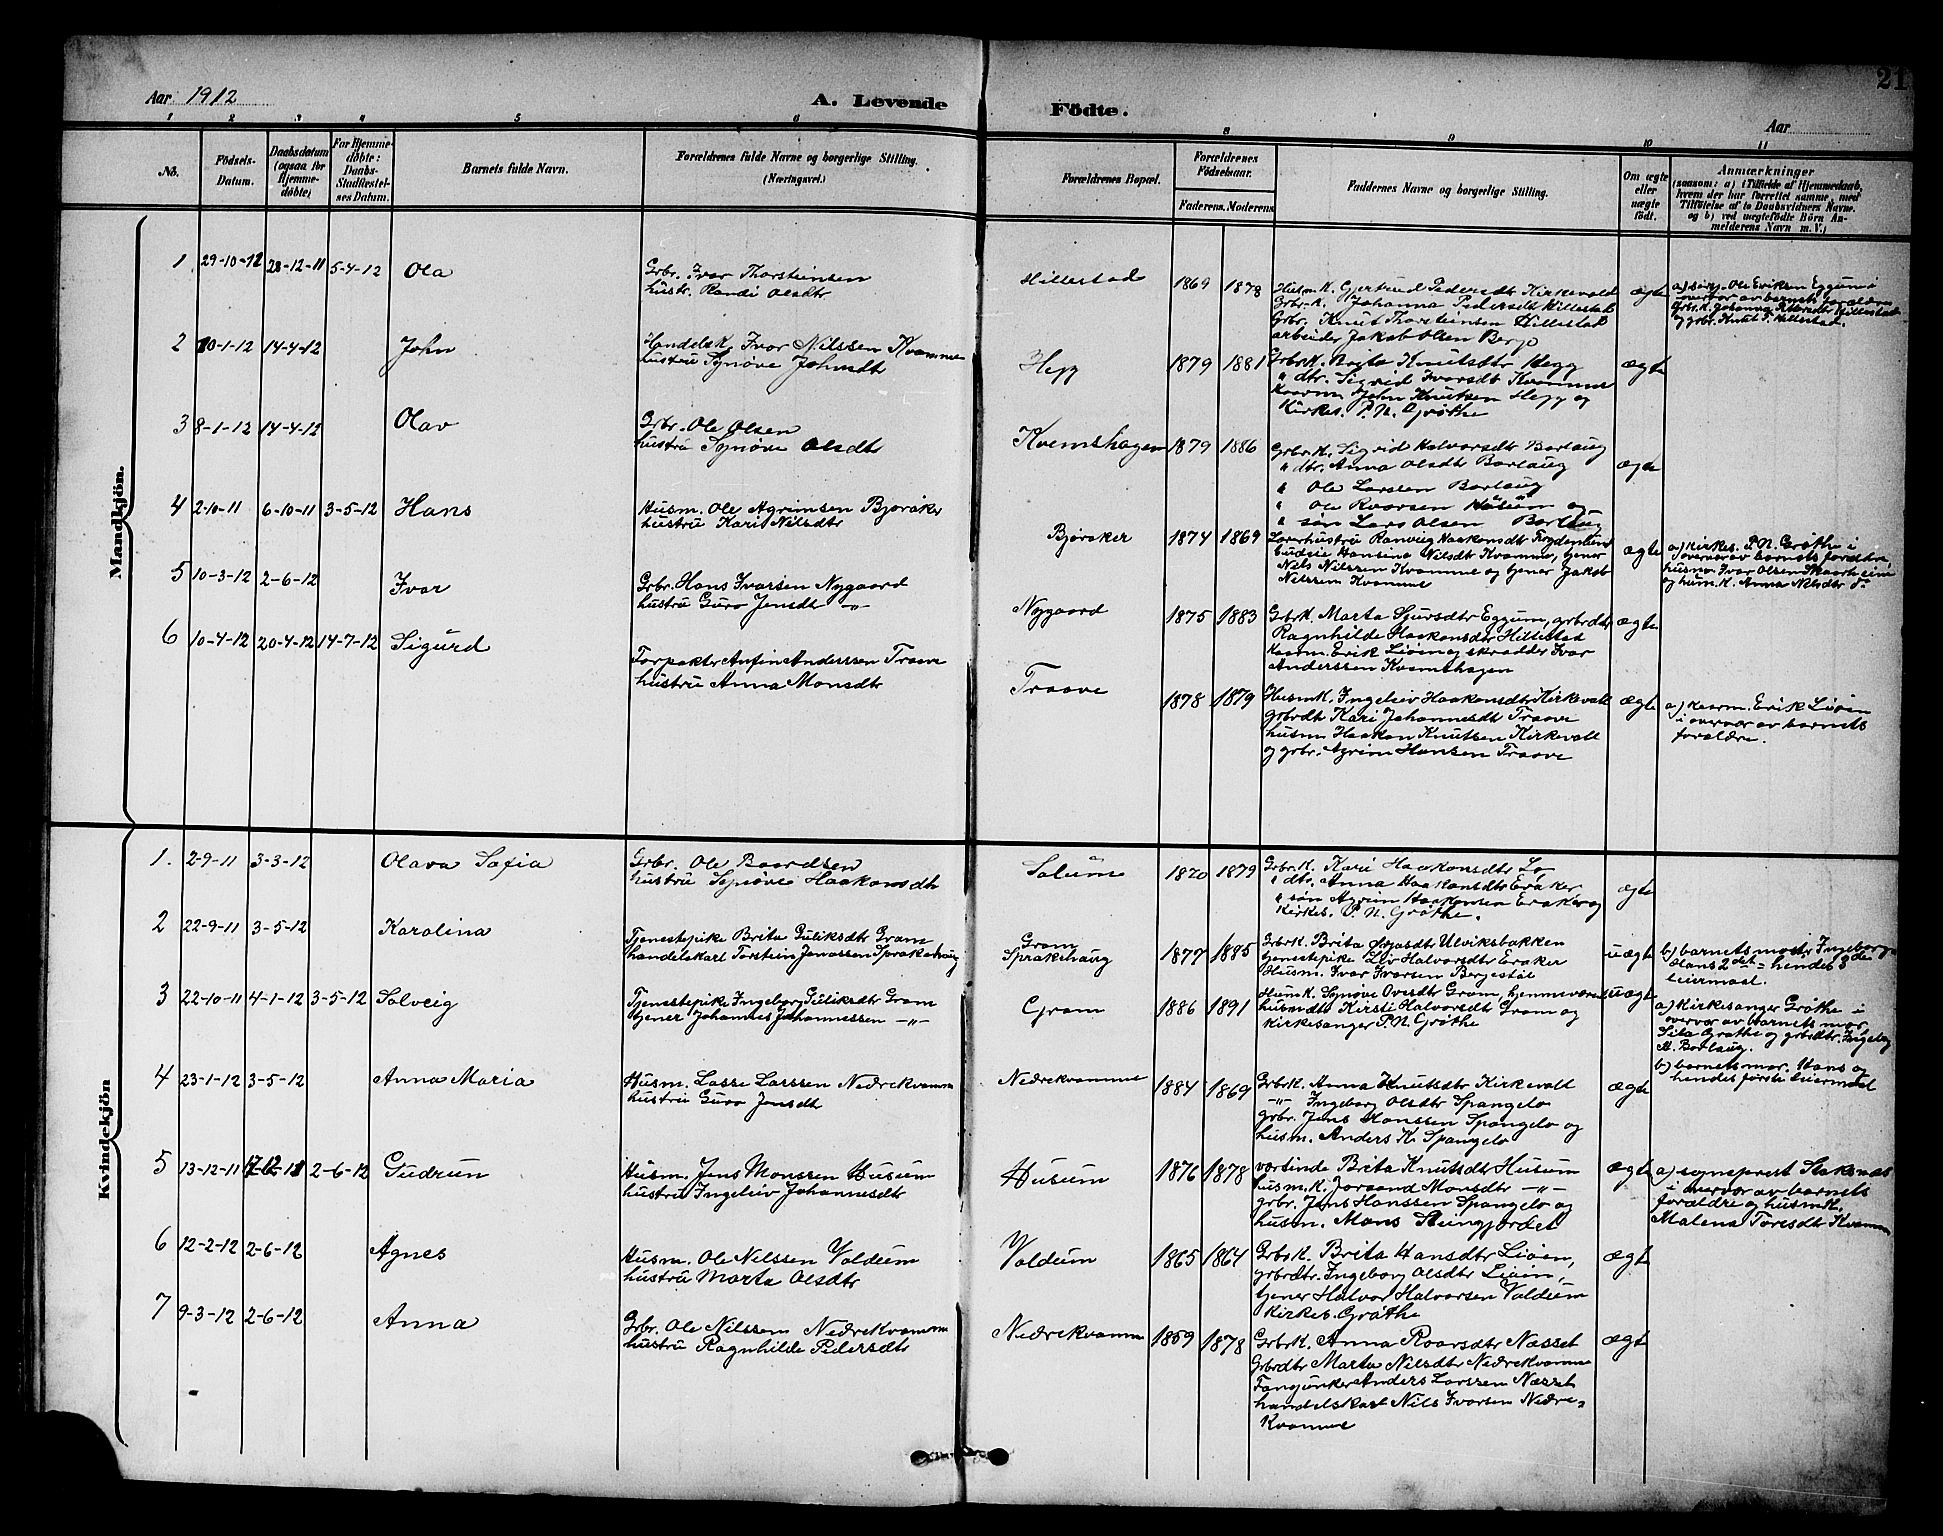 21
Aar 1912
A. Levende
Födte.
Aar
1 2 3 4 5 6 8 9 10 11
No.
Födsels-
Datum.
Daabsdatum
(ogsaa for
Hjemme-
döbte)
For Hjemme-
döbte:
Daabs-
Stadfæstel-
ses Datum.
Barnets fulde Navn.
Forældrenes fulde Navne og borgerlige Stilling.
(Næringsvei.)
Forældrenes Bopæl.
Forældrenes
Födselsaar.
Faderens. Moderens
Faddernes Navne og borgerlige Stilling.
Om ægte
eller
uægte
født.
Anmærkninger
(saasom: a) i Tilfælde af Hjemmedaab,
hvem der har forrettet samme, med
Tilföielse af to Daabsvidners Navne.
og b) ved uægtefödte Börn An-
melderens Navn m. V.)
Mandkjön.
1 29-10-12 28-12-11 5-4-12 Ola
Grbr. Ivar Thorsteinsen
hustr. Randi Olsdtr
Hillestad 1869 1878
Husm.K. Gjertrud Pedersdt Kirkevold
Grbr.K. Johanna Pedersdt Hillestad
Grbr. Knut Thorsteinsen Hillestad
arbeider Jakob Olsen Berge
ægte
a) sirg. Ole Eriksen Eggum i
overvær av barnets forældre
Grbr.K. Johanna Pedersdt Hillestad
og grbr. Knut T. Hillestad.
2 10-1-12 14-4-12 John
Handelsk. Ivar Nilssen Kvamme
hustru Synøve Johnsdt
Hegg 1879 1881
Grbr.K. Brita Knutsdtr Hegg
" dtr. Sigrid Ivarsdt Kvamme
kaarm. John Knutsen Hegg og
Kirkes. P. N. Grøthe
ægte
3 8-1-12 14-4-12 Olav
Grbr. Ole Olsen
hustru Synøve Olsdt
Kvemshagen 1879 1886
Grbr.K. Sigrid Halvorsdtr Borlaug
" dtr. Anna Olsdt Borlaug
" Ole Larsen Borlaug
" Ole Roarsen Husum og
" søn Lars Olsen Borlaug
ægte
4 2-10-11 6-10-11 3-5-12 Hans
Husm. Ole Agrimsen Bjøraker
hustru Kari Nilsdtr
Bjøraker 1874 1869
Lærerhustru Ranveig Haakonsdt Frydenlund
budeie Hansina Nilsdt Kvamme, tjener
Nils Nilssen Kvamme og tjener Jakob
Nilssen Kvamme
ægte
a) kirkes. P. N. Grøthe i
overvær av barnets forældre,
husm. Ivar Olsen Skaarheim
og husm.K. Anna Nilsdtr do
5 10-3-12 2-6-12 Ivar
Grbr. Hans Ivarsen Nygaard
hustru Guro Jensdt -"-
Nygaard 1875 1883
Grbr.K. Marta Sjursdtr Eggum, grbrdtr
Ragnhilde Haakonsdtr Hillestad
kaarm. Erik Liøen og skrædder Ivar
Anderssen Kvamshagen
ægte
6 10-4-12 20-4-12 14-7-12 Sigurd
Forpakter Anfin Anderssen Traave
hustru Anna Monsdtr
Traave 1878 1879
Husm.K. Ingeleiv Haakonsdtr Kirkevoll
grbrdt Kari Johannesdt Traave
husm. Haakon Knutsen Kirkevoll
og grbr. Agrim Hansen Traave
ægte
a) kaarm. Erik Liøen
i overvær av barnets
forældre.
Kvindekjön
1. 2-9-11 3-3-12 Olava Sofia
Grbr. Ole Baardsen
hustru Synøve Haakonsdt
Solum 1870 1879
Grbr.K. Kari Haakonsdtr Lo
" dtr. Anna Haakonsdtr Eraker
" søn Agrim Haakonsen Eraker og
Kirkes. P. N. Grøthe.
ægte
2 22-9-11 3-5-12 Karolina
Tjenestepike Brita Guliksdtr Gram
handelskarl Torstein Jonassen Sprakehaug
Gram
Sprakehaug 1877 1885
Grbr.K. Brita Ulviksbakken
tjenestepike Liv Halvorsdtr Eraker
Husm. Ivar Ivarsen Bergestøl
uægte
b) barnets moster Ingeborg
Hans 2det - hendes 3die
leiermaal.
3 22-10-11 4-1-12 3-5-12 Solveig
Tjenestepike Ingeborg Guliksdtr Gram
tjener Johannes Johannessen -"-
Gram 1886 1891
Husm.K. Synøve Oversdtr Gram, hjemmeværende
husmdtr Kirsti Halvorsdt Gram og
kirkesanger P. N. Grøthe
uægte
a) Kirkesanger Grøthe i
overvær av barnets mor
Sita Grøthe og grbrdtr. Ingeborg
H. Borlaug.
b) barnets mor. Hans og
hendes første leiermaal
4 23-1-12 3-5-12 Anna Maria
Husm. Lasse Larssen Nedrekvamme
hustru Guro Jensdt
Nedrekvamme 1884 1869
Grbr.K. Anna Knutsdtr Kirkevoll
-"- Ingeborg Olsdtr Spangelo
grbr. Jens Hanssen Spangelo og
husm. Anders K. Spangelo
ægte
5 13-12-11 17-12-11 2-6-12 Gudrun
Husm. Jens Monssen Husum
hustru Ingeleiv Johannesdtr
Husum 1876 1878
værtinde Brita Knutsdt Husum
husm.K. Joraand Monsdtr -"-
grbr. Jens Hanssen Spangelo og
husm. Mons Steingjordet
ægte
a) sogneprest Staksnæs
i overvær av barnets
forældre og husm.K.
Malena Toresdt Kvamme
6 12-2-12 2-6-12 Agnes
Husm. Ole Nilssen Voldum
hustru Marta Olsdtr
Voldum 1865 1864
Grbr.K. Brita Hansdtr Liøen,
grbrdtr. Ingeborg Olsdtr Liøen,
tjener Halvor Halvorsen Voldum
Kirkes. Grøthe
ægte
7 9-3-12 2-6-12 Anna
Grbr. Ole Nilssen Nedrekvamm
hustru Ragnhilde Pedersdtr
Nedrekvamm 1859 1878
Grbr.K. Anna Roarsdtr Næsset
Grbrdtr Marta Nilsdtr Nedrekvamme
Fanejunker Anders Larssen Næsset
handelskarl Nils Ivarsen Nedre-
Kvamme
ægte